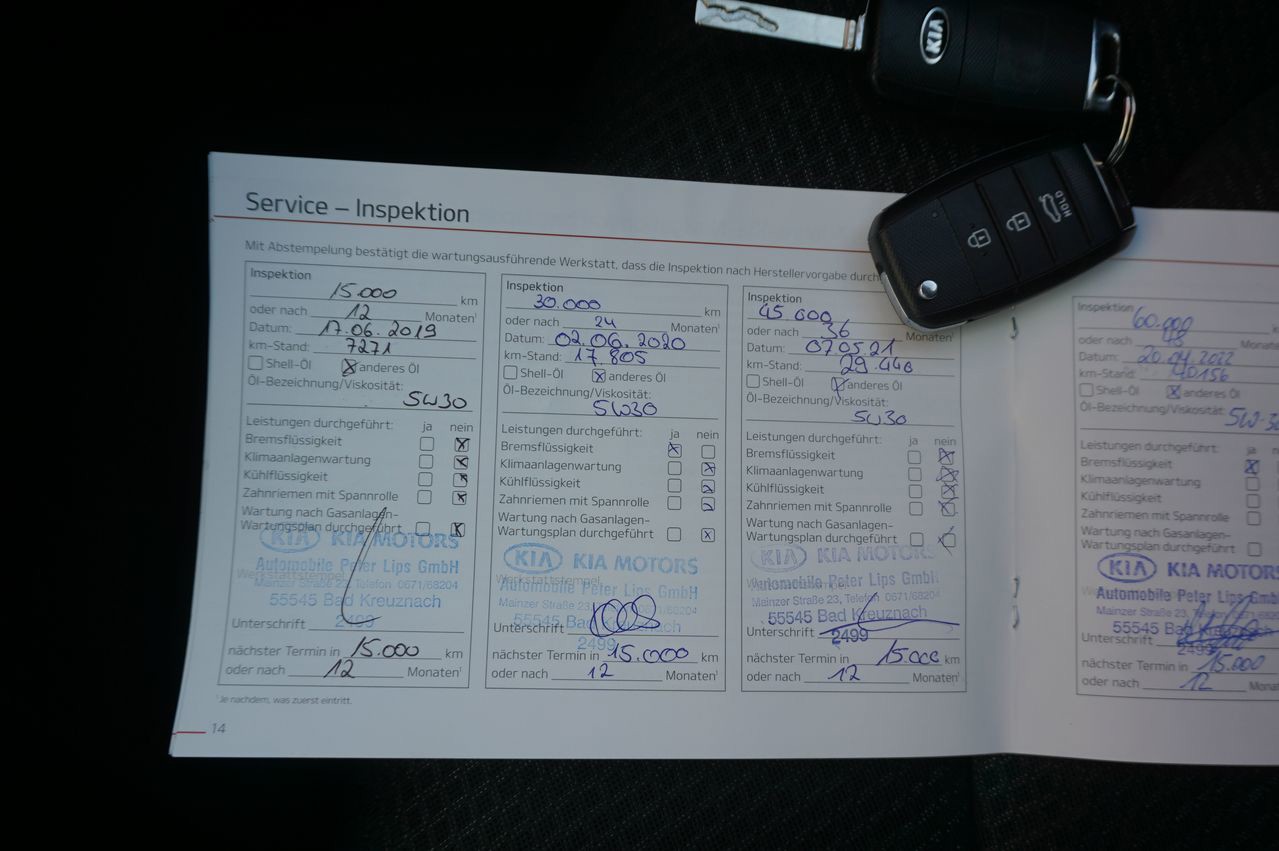 KIA
HOLD
Service – Inspektion
Mit Abstempelung bestätigt die wartungsausführende Werkstatt, dass die Inspektion nach Herstellervorgabe durch
Inspektion
15.000 km
oder nach 12 Monaten¹
Datum: 17.06.2019
km-Stand: 7271
Shell-Öl anderes Öl
Öl-Bezeichnung/Viskosität:
5W30
Leistungen durchgeführt: ja nein
Bremsflüssigkeit
Klimaanlagenwartung
Kühlflüssigkeit
Zahnriemen mit Spannrolle
Wartung nach Gasanlagen-
Wartungsplan durchgeführt
KIA KIA MOTORS
Automobile Peter Lips GmbH
Werkstattstempel
Mainzer Straße 23, Telefon 0671/68204
55545 Bad Kreuznach
Unterschrift 2499
nächster Termin in 15.000 km
oder nach 12 Monaten¹
Inspektion
30.000 km
oder nach 24 Monaten¹
Datum: 02.06.2020
km-Stand: 17.805
Shell-Öl anderes Öl
Öl-Bezeichnung/Viskosität:
5W30
Leistungen durchgeführt: ja nein
Bremsflüssigkeit
Klimaanlagenwartung
Kühlflüssigkeit
Zahnriemen mit Spannrolle
Wartung nach Gasanlagen-
Wartungsplan durchgeführt
KIA KIA MOTORS
Werkstattstempel
Automobile Peter Lips GmbH
Mainzer Straße 23, 0671/68204
55545 Bad Kreuznach
Unterschrift
2499
nächster Termin in 15.000 km
oder nach 12 Monaten¹
Inspektion
45.000 km
oder nach 36 Monaten¹
Datum: 07.05.21
km-Stand: 29.448
Shell-Öl anderes Öl
Öl-Bezeichnung/Viskosität:
5W30
Leistungen durchgeführt: ja nein
Bremsflüssigkeit
Klimaanlagenwartung
Kühlflüssigkeit
Zahnriemen mit Spannrolle
Wartung nach Gasanlagen-
Wartungsplan durchgeführt
KIA KIA MOTORS
Automobile Peter Lips GmbH
Mainzer Straße 23, Telefon 0671/68204
55545 Bad Kreuznach
Unterschrift 2499
nächster Termin in 15.000 km
oder nach 12 Monaten¹
Inspektion
60.000
oder nach 48 Monate
Datum: 20.04.2022
km-Stand: 40156
Shell-Öl anderes Öl
Öl-Bezeichnung/Viskosität:
5W-30
Leistungen durchgeführt: ja
Bremsflüssigkeit
Klimaanlagenwartung
Kühlflüssigkeit
Zahnriemen mit Spannrolle
Wartung nach Gasanlagen-
Wartungsplan durchgeführt
KIA KIA MOTORS
Automobile Peter Lips Gmb
Mainzer Straße 23, 
55545 Bad Kreuznach
Unterschrift 2499
nächster Termin in 15.000
oder nach 12 Mona
¹Je nachdem, was zuerst eintritt.
14